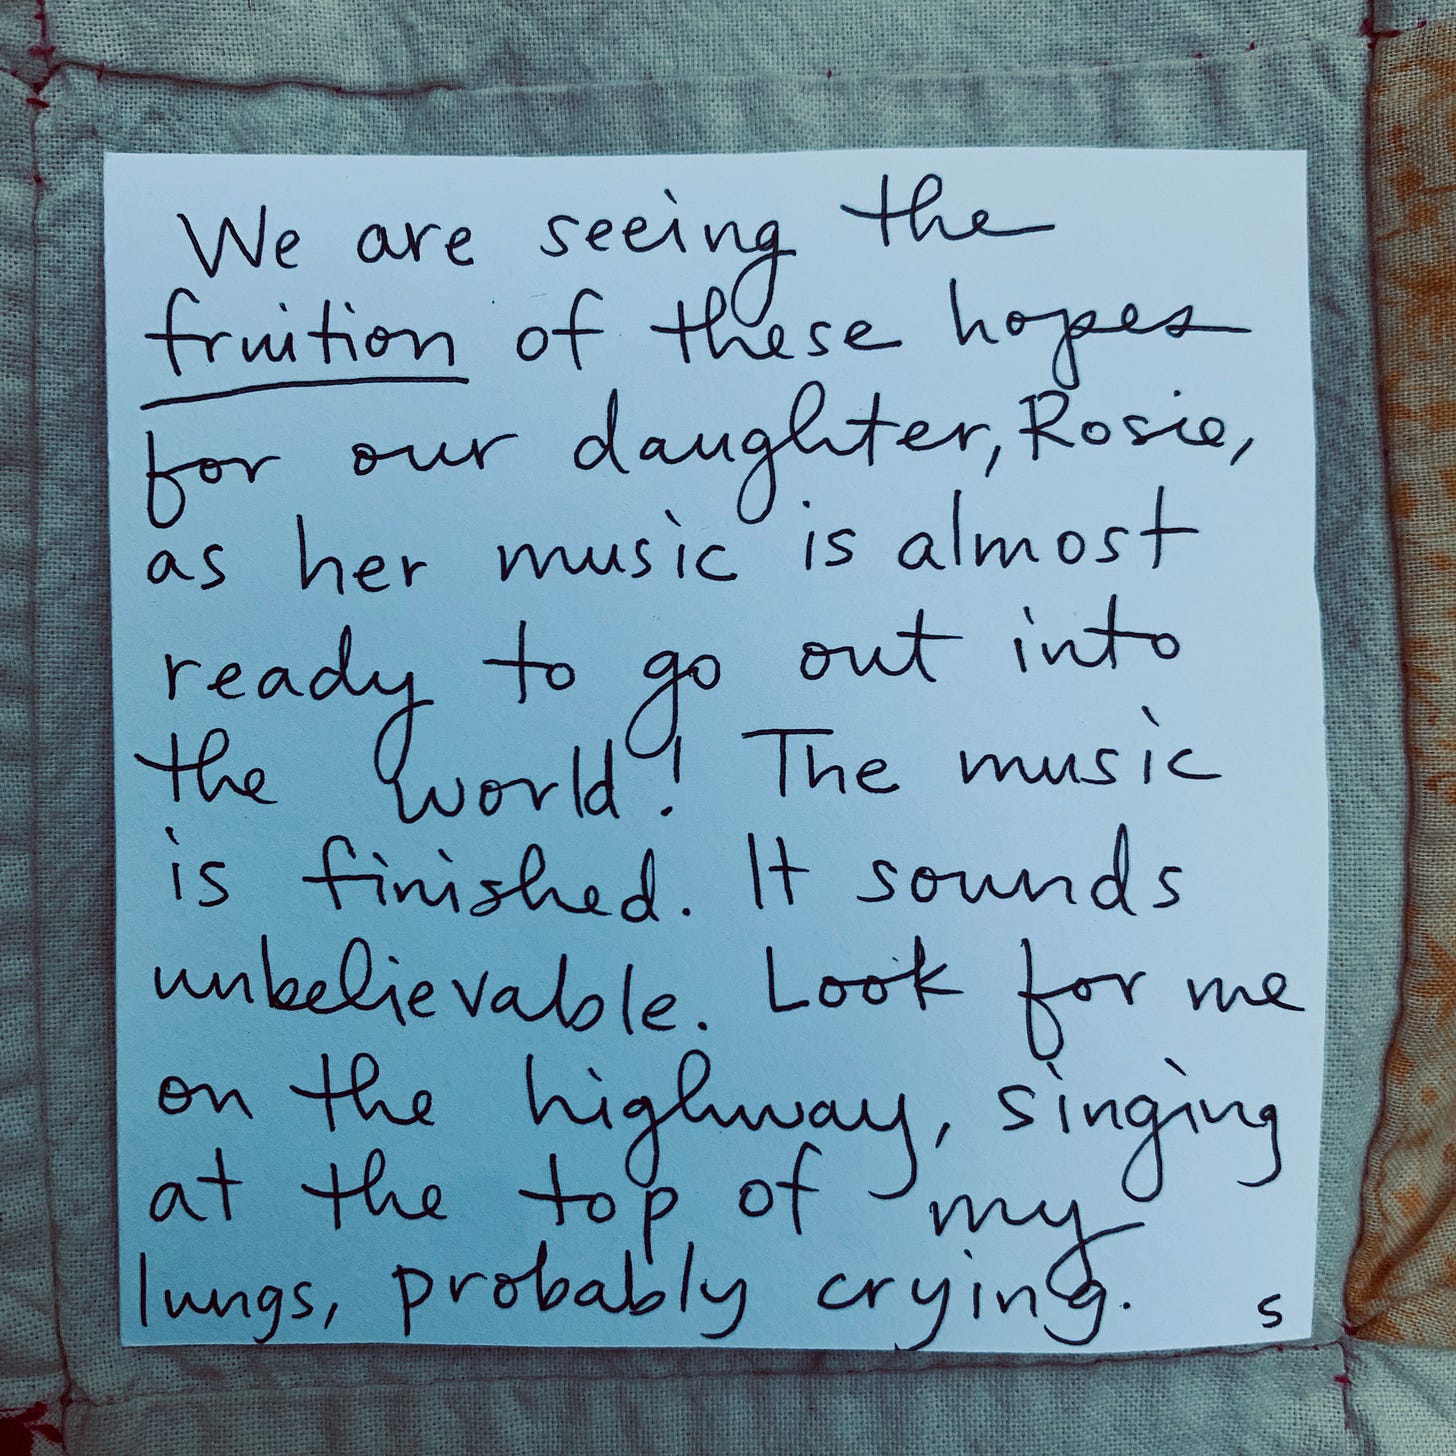 We are seeing the
fruition of these hopes
for our daughter, Rosie,
as her music is almost
ready to go out into
the world! The music
is finished. It sounds
unbelievable. Look for me
on the highway, singing
at the top of my
lungs, probably crying.
5